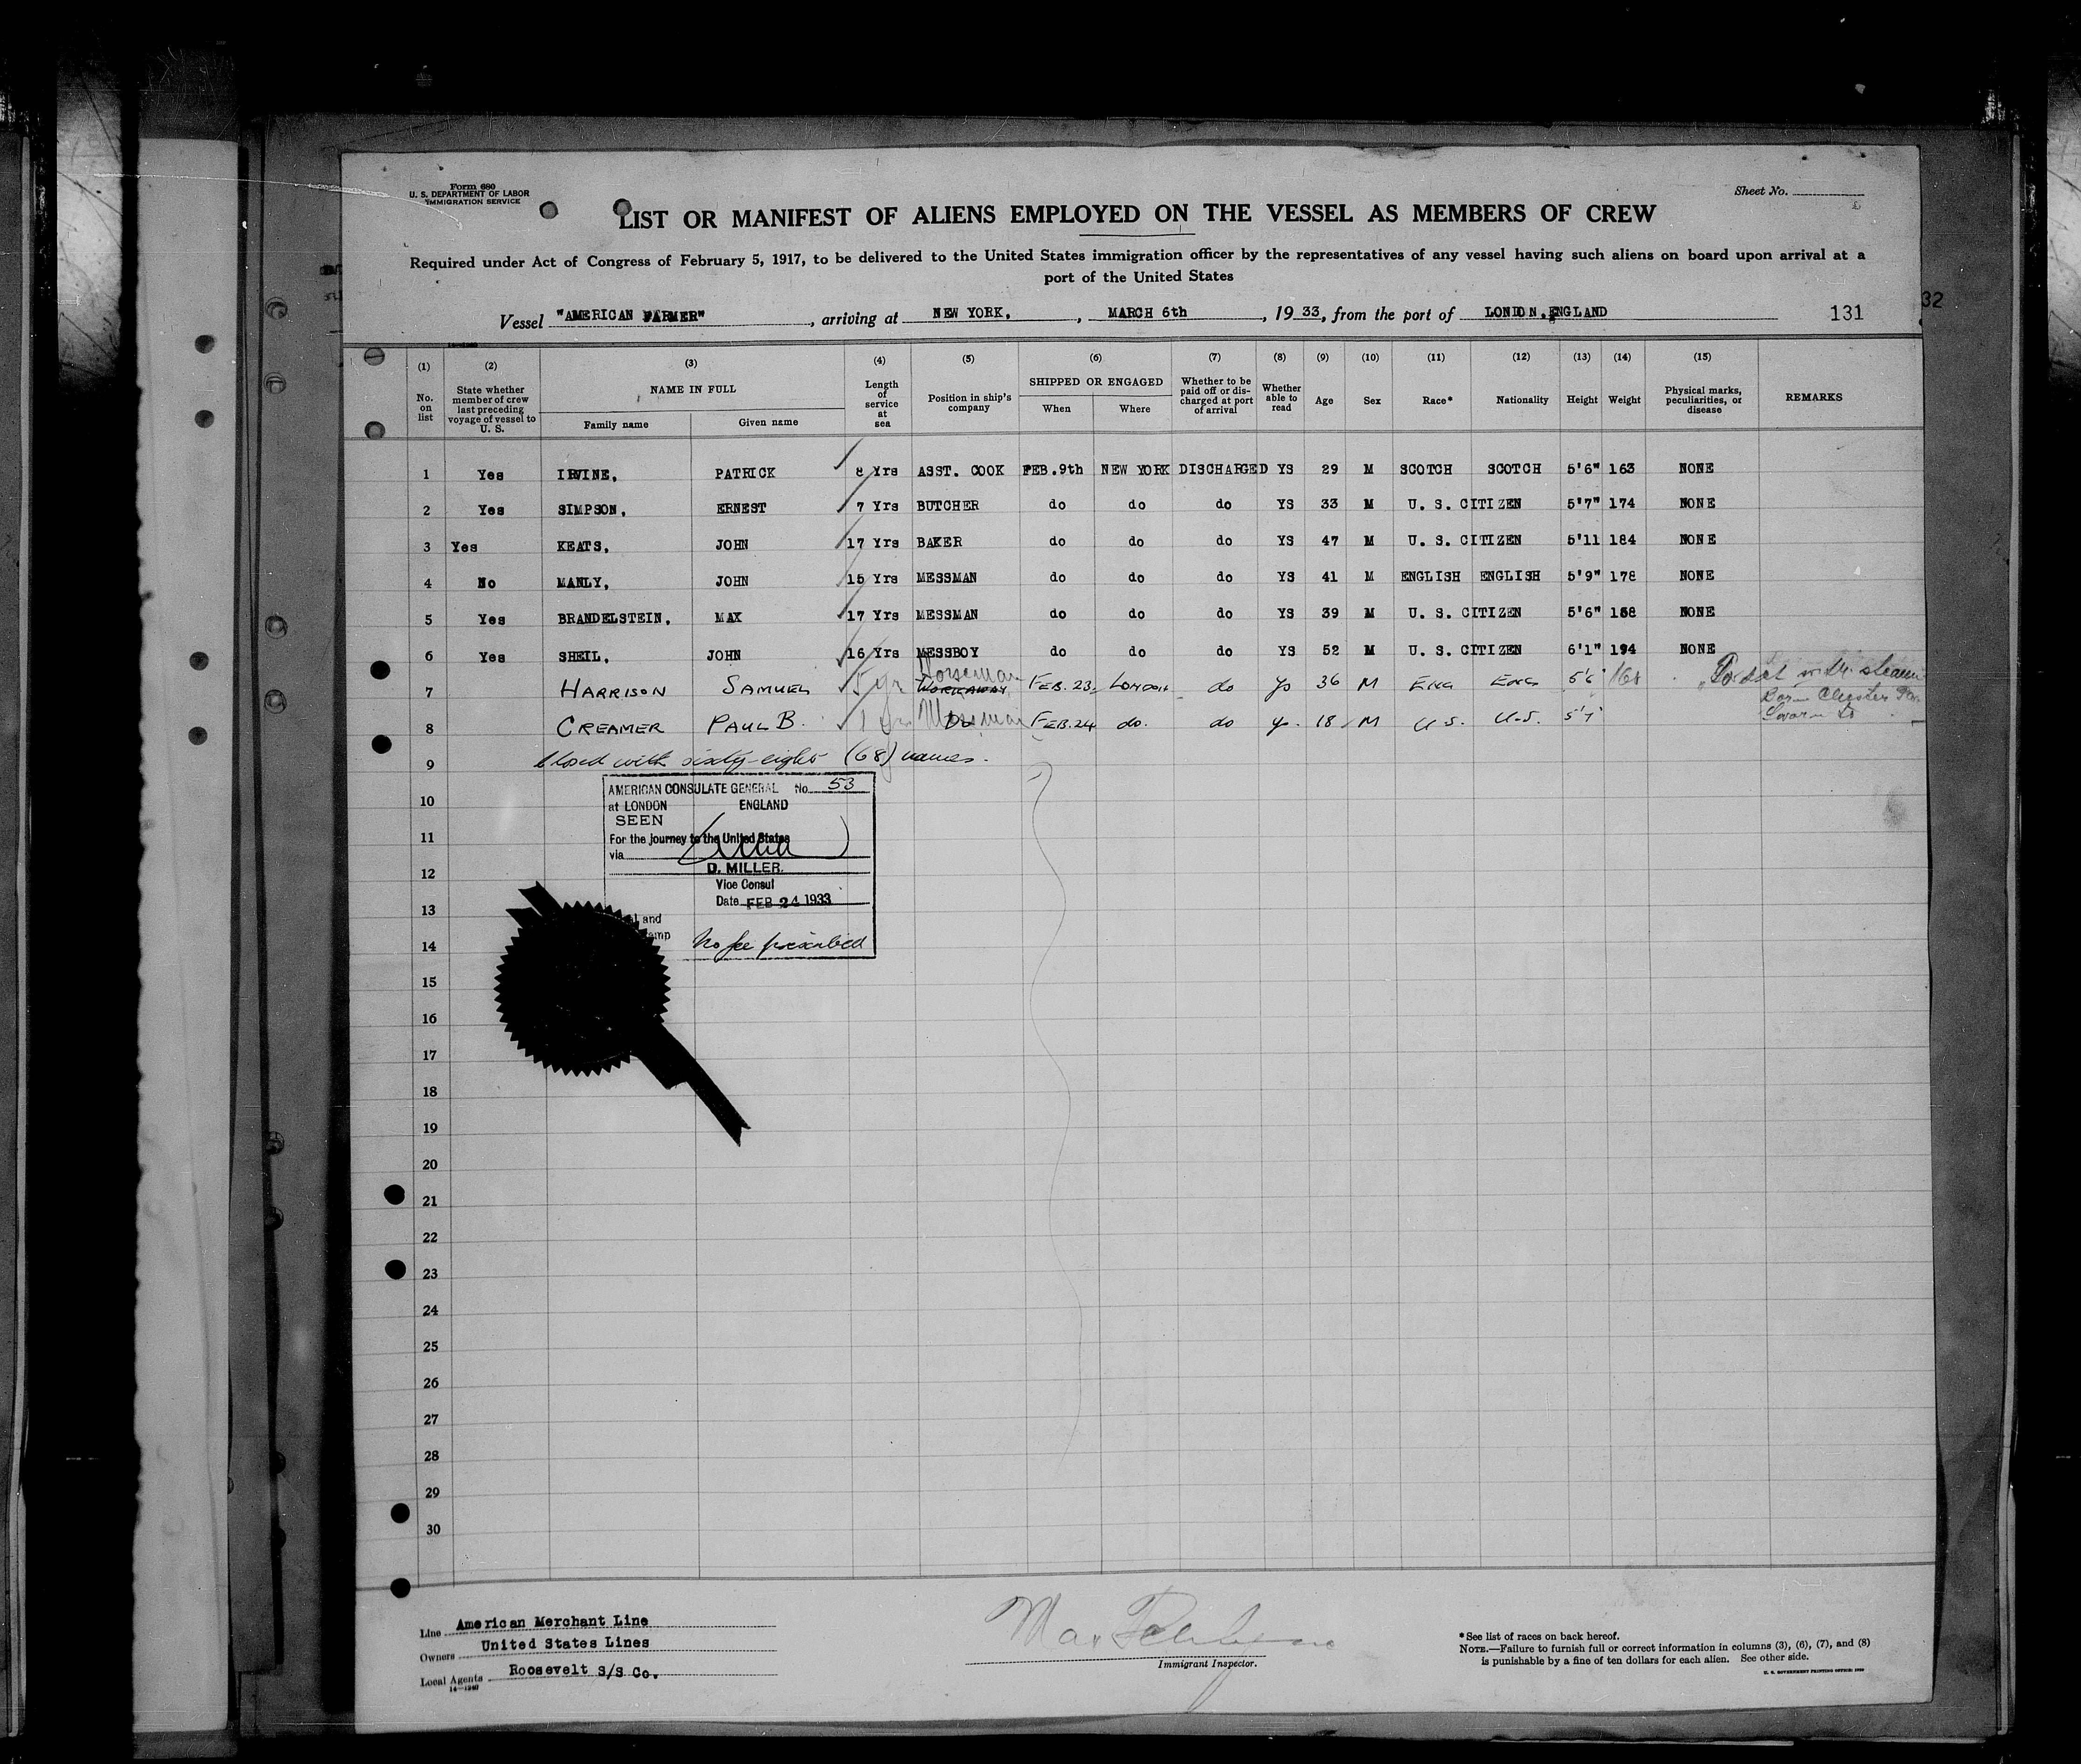 Form 680
U. S. DEPARTMENT OF LABOR
IMMIGRATION SERVICE
Sheet No.
LIST OR MANIFEST OF ALIENS EMPLOYED ON THE VESSEL AS MEMBERS OF CREW
Required under Act of Congress of February 5, 1917, to be delivered to the United States immigration officer by the representatives of any vessel having such aliens on board upon arrival at a
port of the United States
Vessel "AMERICAN FARMER", arriving at NEW YORK, , MARCH 6th, 1933, from the port of LONDON, ENGLAND 131
32
(1) (2) (3) (4) (5) (6) (7) (8) (9) (10) (11) (12) (13) (14) (15)
No. on list State whether member of crew last preceding voyage of vessel to U. S. NAME IN FULL Family name Given name Length of service at sea Position in ship's company SHIPPED OR ENGAGED When Where Whether to be paid off or discharged at port of arrival Whether able to read Age Sex Race* Nationality Height Weight Physical marks, peculiarities, or disease REMARKS
1 Yes IRVINE, PATRICK 8 Yrs ASST. COOK FEB.9th NEW YORK DISCHARGED YS 29 M SCOTCH SCOTCH 5'6" 163 NONE
2 Yes SIMPSON, ERNEST 7 Yrs BUTCHER do do do YS 33 M U. S. CITIZEN 5'7" 174 NONE
3 Yes KEATS, JOHN 17 Yrs BAKER do do do YS 47 M U. S. CITIZEN 5'11 184 NONE
4 No MANLY, JOHN 15 Yrs MESSMAN do do do YS 41 M ENGLISH ENGLISH 5'9" 178 NONE
5 Yes BRANDELSTEIN, MAX 17 Yrs MESSMAN do do do YS 39 M U. S. CITIZEN 5'6" NONE
6 Yes SHEIL, JOHN 16 Yrs MESSBOY do do do YS 52 M U. S. CITIZEN 6'1" 194 NONE
7 HARRISON SAMUEL 5 yr Horseman WORKAWAY FEB. 23. LONDON do ys 36 M ENG ENG 5'6"
8 CREAMER PAUL B. 1 Messman Do FEB.24 do. do ys. 18 M U S. U.S. 5'7"
Born Chester Pa.
9 Closed with sixty-eight (68) names.
AMERICAN CONSULATE GENERAL No. 53
at LONDON ENGLAND
SEEN
For the journey to the United States
via
D. MILLER.
Vice Consul
Date FEB 24 1933
and
No fee prescribed
10
11
12
13
14
15
16
17
18
19
20
21
22
23
24
25
26
27
28
29
30
Line American Merchant Line
Owners United States Lines
Local Agents Roosevelt S/S Co.
14—1240
Immigrant Inspector.
*See list of races on back hereof.
NOTE.—Failure to furnish full or correct information in columns (3), (6), (7), and (8)
is punishable by a fine of ten dollars for each alien. See other side.